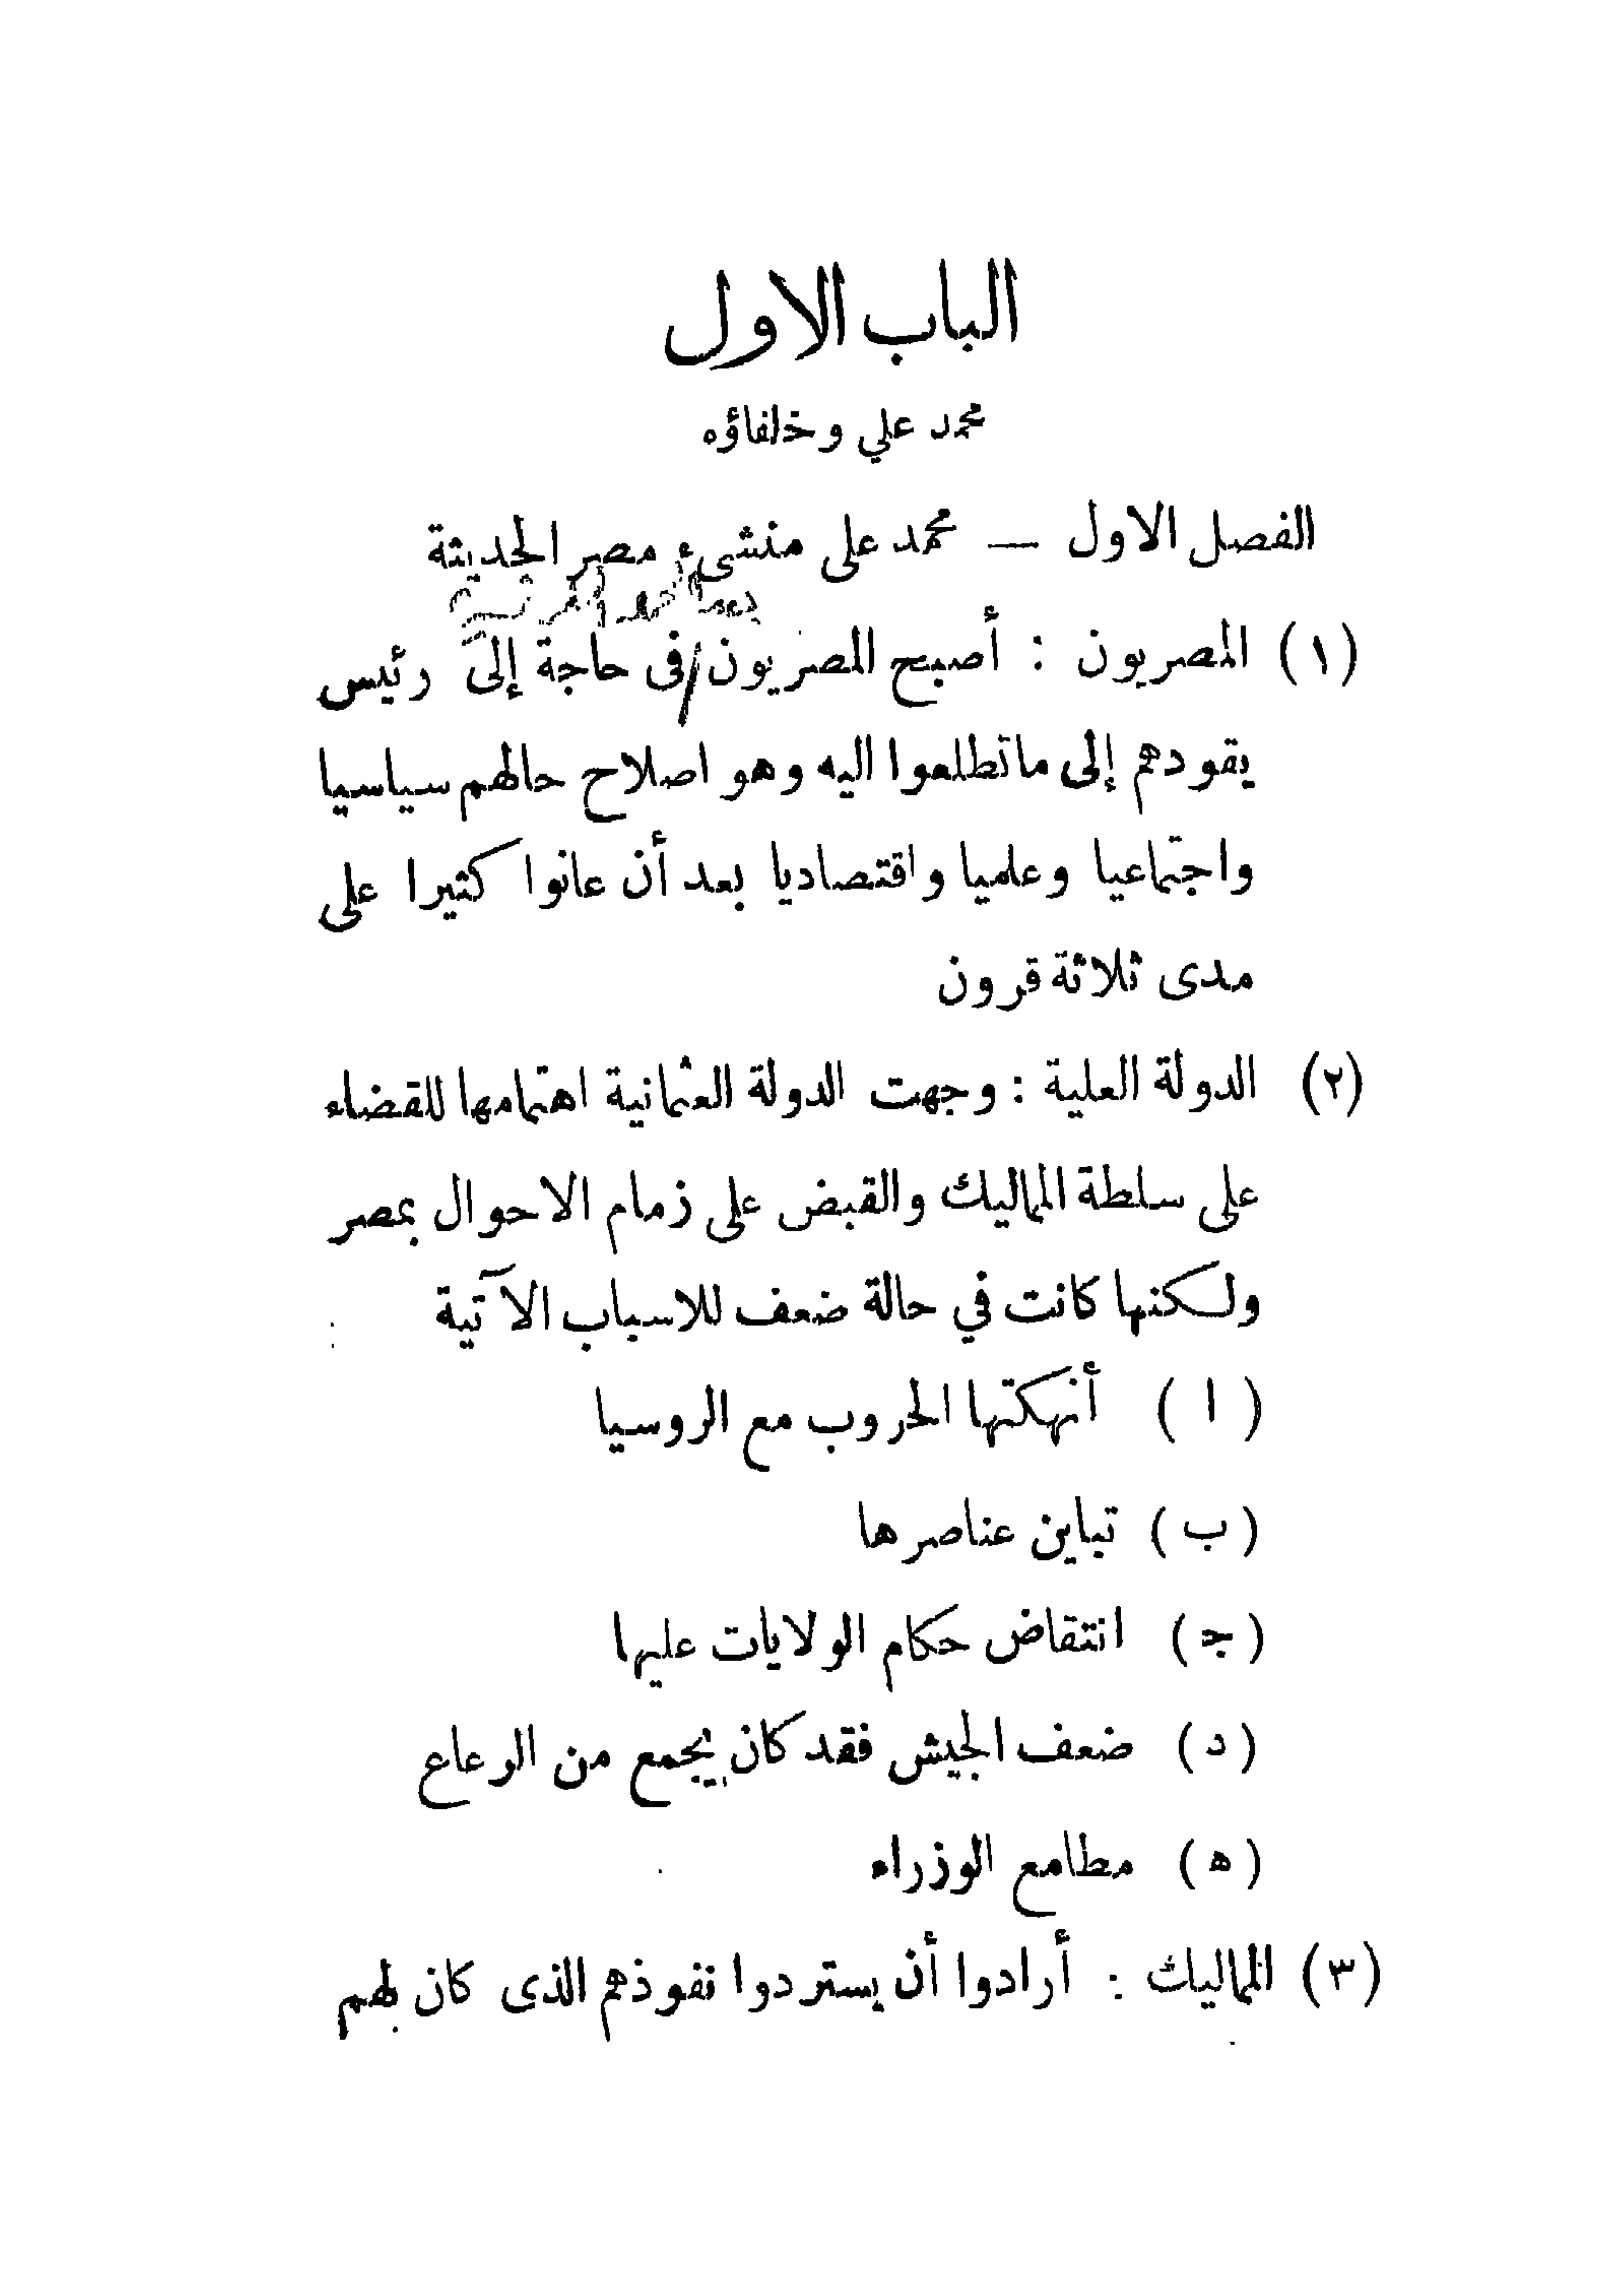 الباب الاول
محمد علي وخلفاؤه
الفصل الاول — محمد على منشىء مصر الحديثة
(١) المصريون : أصبح المصريون / فى حاجة إلى رئيس
يقودهم إلى ماتطلعوا اليه وهو اصلاح حالهم سياسيا
واجتماعيا وعلميا واقتصاديا بعد أن عانوا كثيرا على
مدى ثلاثة قرون
(٢) الدولة العلية : وجهت الدولة العثمانية اهتمامها للقضاء
على سلطة المماليك والقبض على زمام الاحوال بمصر
ولكنها كانت في حالة ضعف للاسباب الآتية :
( ا ) أنهكتها الحروب مع الروسيا
( ب ) تباين عناصرها
( ج ) انتقاض حكام الولايات عليها
( د ) ضعف الجيش فقد كان يجمع من الرعاع
( ه ) مطامع الوزراء
(٣) المماليك : أرادوا أن يستردوا نفوذهم الذى كان لهم